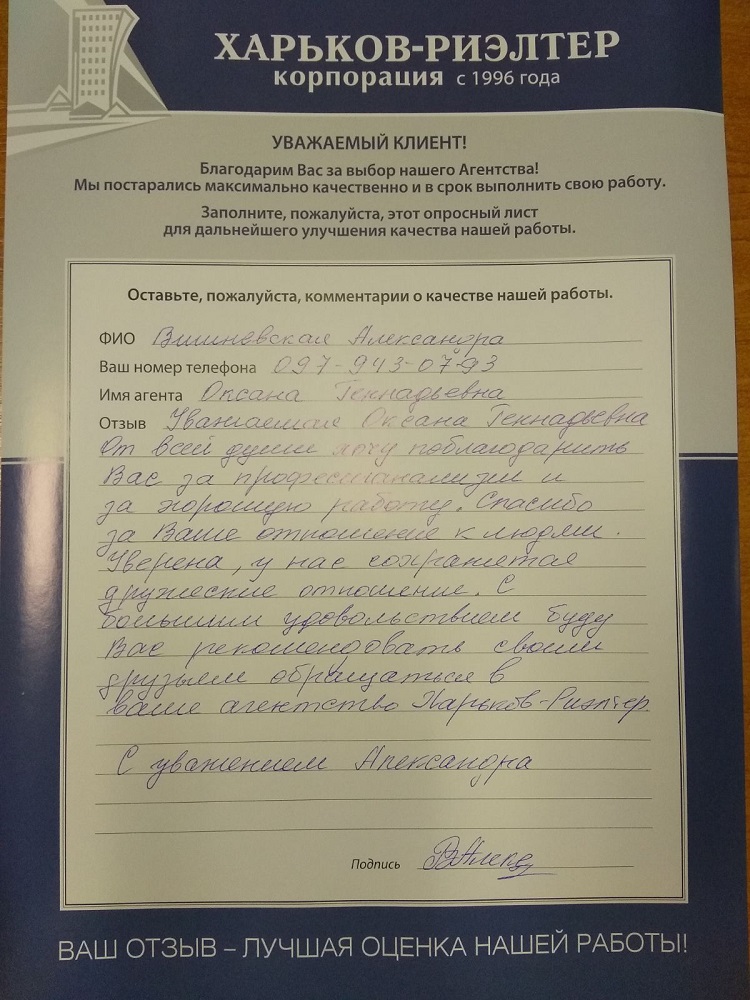 ХАРЬКОВ-РИЭЛТЕР
корпорация с 1996 года
УВАЖАЕМЫЙ КЛИЕНТ!
Благодарим Вас за выбор нашего Агентства!
Мы постарались максимально качественно и в срок выполнить свою работу.
Заполните, пожалуйста, этот опросный лист
для дальнейшего улучшения качества нашей работы.
Оставьте, пожалуйста, комментарии о качестве нашей работы.
ФИО Вишневская Александра
Ваш номер телефона 097-943-07-93
Имя агента Оксана Геннадьевна
Отзыв Уважаемая Оксана Геннадьевна
От всей души хочу поблагодарить
Вас за профессианализм и
за хорошую работу. Спасибо
за Ваше отношение к людям.
Уверена, у нас сохранятся
дружеские отношение. С
большим удовольствием буду
Вас рекомендовать своим
друзьям обращаться в
ваше агентство Харьков-Риэлтер.
С уважением Александра
Подпись
ВАШ ОТЗЫВ – ЛУЧШАЯ ОЦЕНКА НАШЕЙ РАБОТЫ!